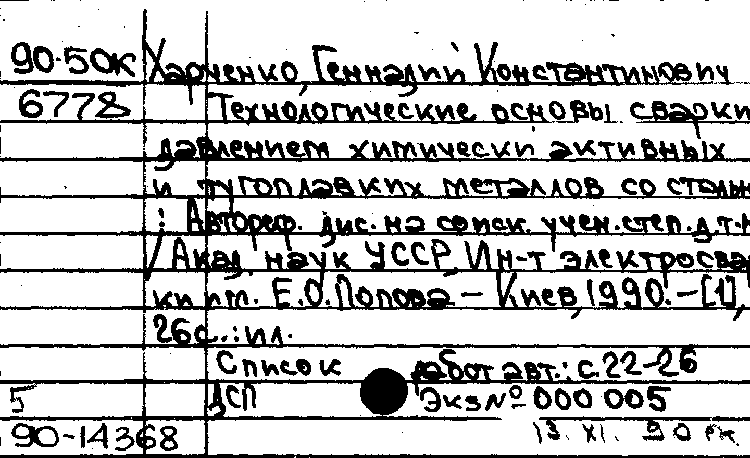 90-50к Харченко, Геннадий Константинович
6778 Технологические основы сварки
давлением химически активных
и тугоплавких металлов со сталью
: Автореф. дис. на соиск. учен. степ. д.т.н
/ Акад. наук УССР Ин-т электросвар
ки им. Е.О.Попова – Киев, 1990. – [1],
26с.: ил.
Список работ авт.: с.22-26
5 ДСП Экз № 000 005
90-14368 13. XI. 90